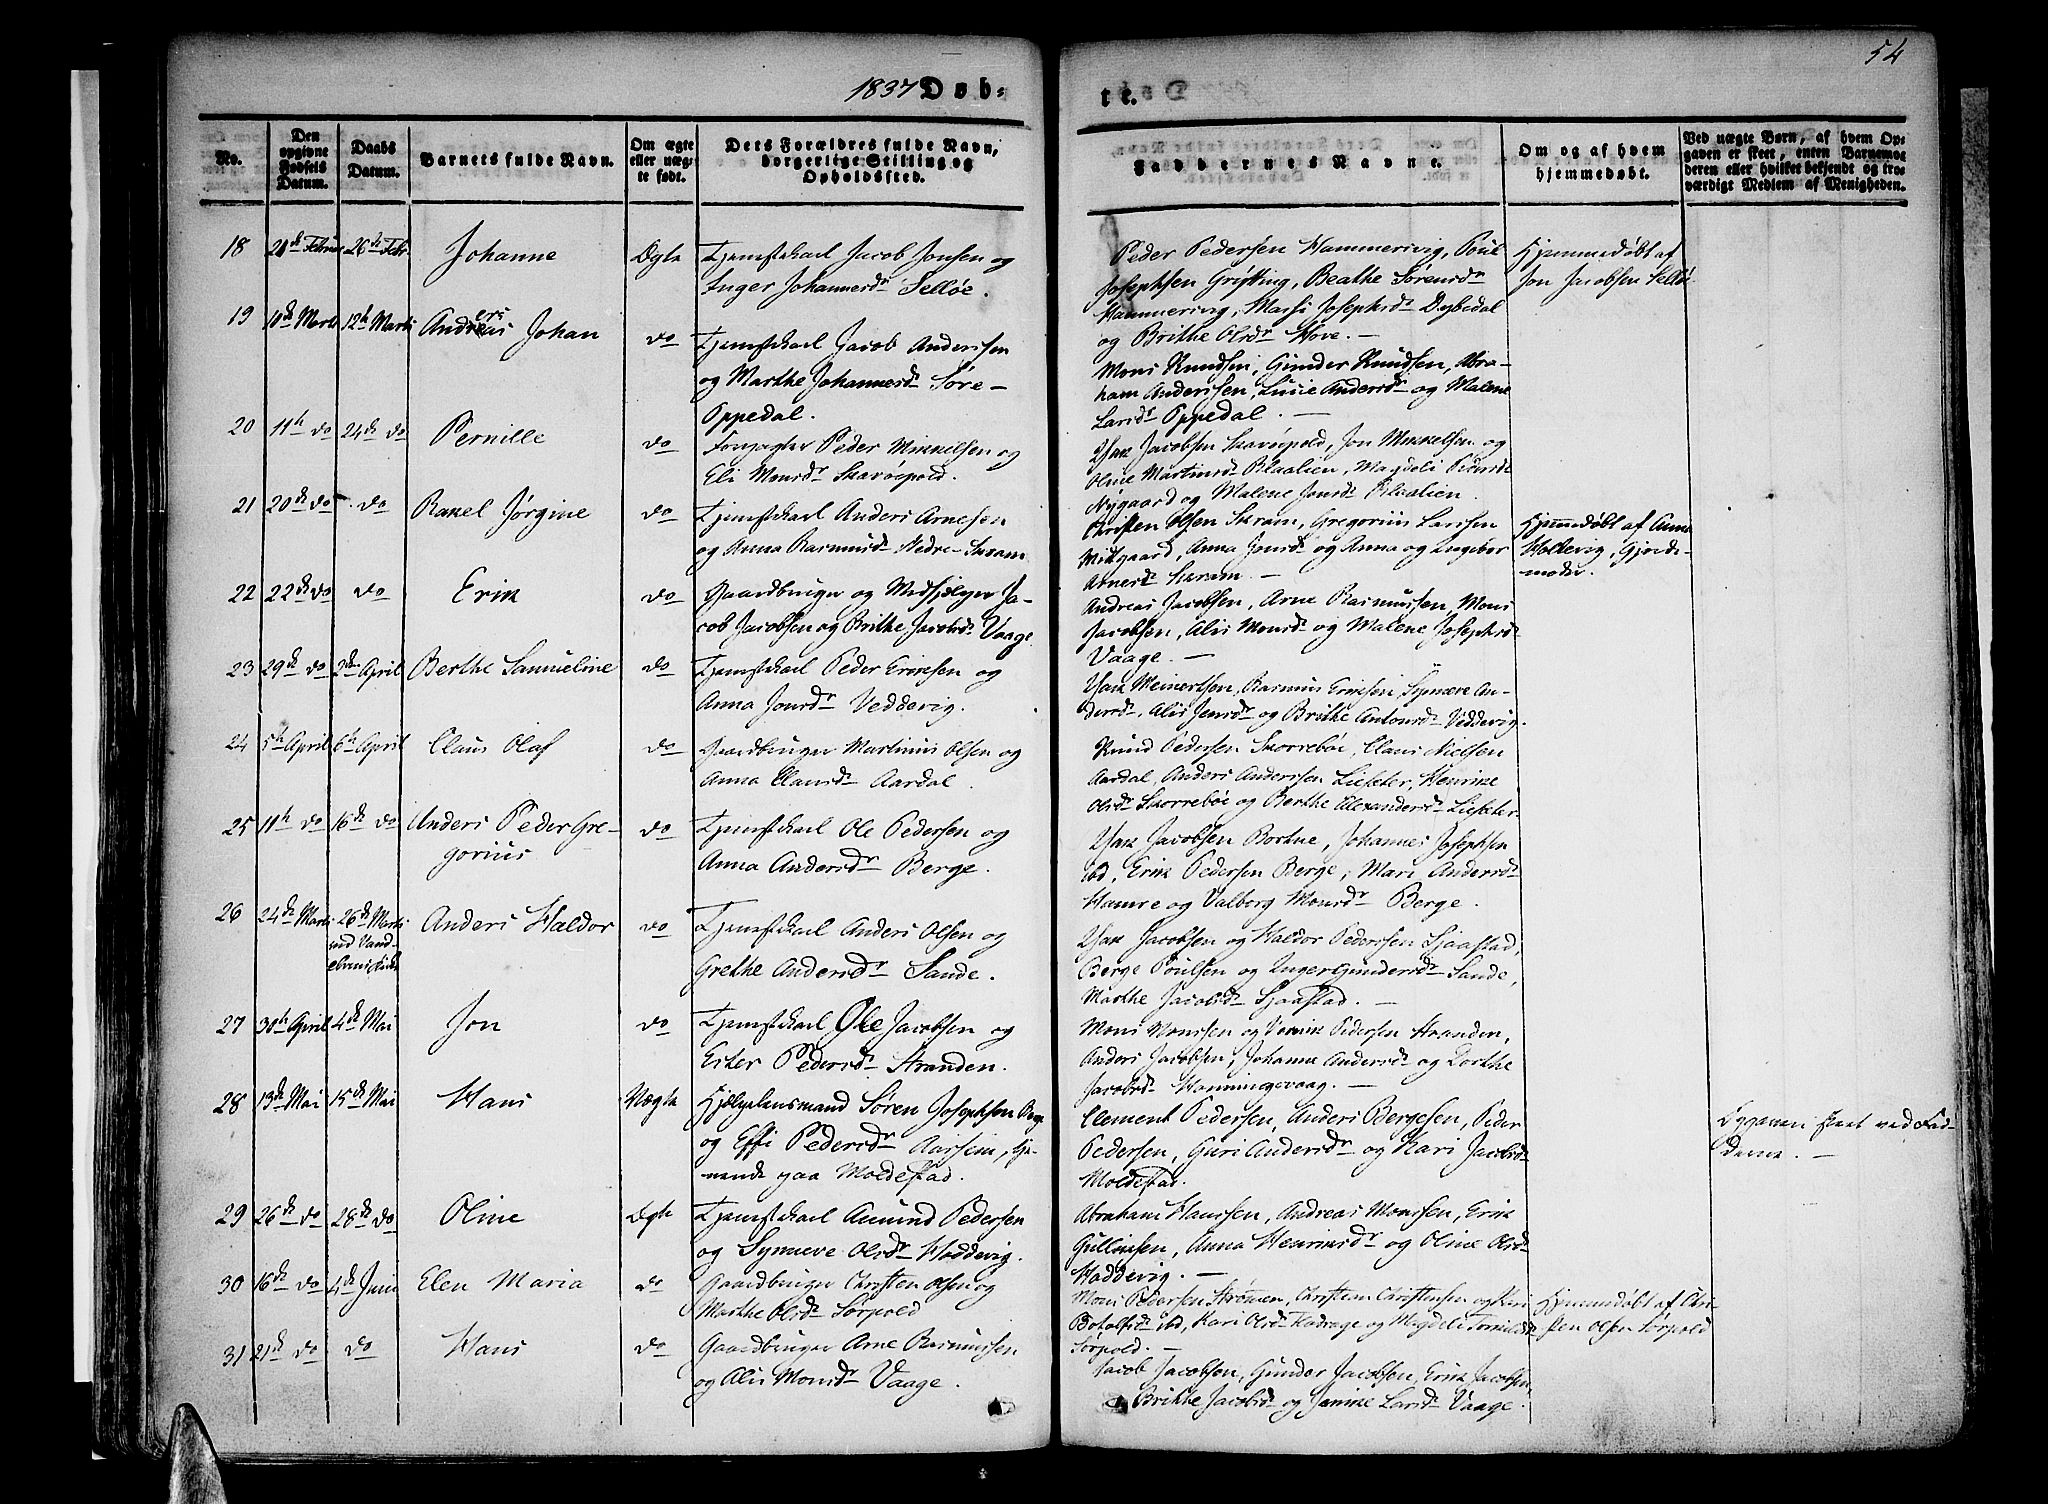 54
1837 Døb=
te.
No.
Den opgivne Fødsels Datum.
Daabs Datum.
Barnets fulde Navn.
Om ægte eller uægte født.
Dets Forældres fulde Navn, borgerlige Stilling og Opholdssted.
Faddernes Navne.
Om og af hvem hjemmedøbt.
Ved uægte Børn, af hvem Opgaven er skeet, enten Barnemoderen eller hvilket bekjendt og troværdigt Medlem af Menigheden.
18 26de Febr. Johanne Ægte Tjenestekarl Jacob Jonsen og
Inger Johannesdr Selløe.
Peder Pedersen Hammersvig, Poul
Josephsen Grytting, Beathe Sørensdr
Hammersvig, Marthe Josephsdr Dybedal
og Brithe Olsdr Hove. —
Hjemmedøbt af
Jon Jacobsen Selløe
19 10de Marts 12te Marts Anders Johan do Tjenestekarl Jacob Andersen
og Marthe Johannesdr Søre-
Oppedal.
Mons Knudsen, Gunder Knudsen, Abra-
ham Anderssen, Lucie Andersdr og Malene
Larsdr Oppedal. —
20 11te do 24de do Pernille do Peder Mikkelsen og
Eli Monsdr Skavøepold.
Isak Jacobsen Skavøepold, Jon Mikkelsen og
Oline Martinsdr Blaalien, Magdeli Pedersdr
Nygaard og Malene Jonsdr Blaalien.
21 20de do do Rakel Jørgine do Tjenestekarl Anders Arnesen
og Anna Rasmusdr Nedre-Skram
Christen Olsen Skram, Gregorius Larssen
Midtgaard, Anna Jonsdr og Anna og Ingebor
Arnesdr Skram. —
Hjemmedøbt af Anne
Hollevig, Gjorde-
moder.
22 22de do do Erik do Gaardbruger og Medhjelper Ja-
cob Jacobsen og Brithe Jacobsdr Vaage
Andreas Jacobsen, Arne Rasmussen, Mons
Jacobsen, Alis Monsdr og Malene Josephsdr
Vaage. —
23 29de do 2den April Berthe Samueline do Tjenestekarl Peder Eriksen og
Anna Jonsdr Veddevig.
Isak Meinertsen, Rasmus Eriksen, Synneve An-
dersdr, Alis Jensdr og Brithe Antonsdr Veddevig.
24 5te April 6te April Claus Olaf do Gaardbruger Martinus Olsen og
Anna Clausdr Aardal.
Knud Pedersen Skorrebøe, Claus Nielsen
Aardal, Anders Anderssen Liesæter, Henrike
Olsdr Skorrebøe og Berthe Alexandersdr Liesæter.
25 11te do 16de do Anders Peder Gre-
gorius
do Tjenestekarl Ole Pedersen og
Anna Andersdr Berge.
Isak Jacobsen Bortne, Johannes Josephsen
ibd, Erik Pedersen Berge, Mari Andersdr
Hamre og Valborg Monsdr Berge.
26 24de Marts 26de Marts Anders Haldor do Tjenestekarl Anders Olsen og
Grethe Andersdr Sande.
Isak Jacobsen og Haldor Pederssen Sjaastad,
Berge Poulsen og Inger Gundersdr Sande,
Marthe Jacobsdr Sjaastad. —
27 30te April 4de Mai Jon do Tjenestekarl Ole Jacobsen og
Ester Pedersdr Stranden.
Mons Monssen og Henrik Pedersen Stranden,
Anders Jacobsen, Johanne Andersdr og Dorthe
Jacobsdr Honningsvaag. —
28 13de Mai 15de Mai Hans Uægte Hjelpelensmand Søren Josephsen Berge
og Effi Pedersdr Aarseim, tje-
nende paa Moldestad.
Clement Pedersen, Anders Bergesen, Peder
Pedersen, Guri Andersdr og Kari Jacobsdr
Moldestad.
Opgaven skeet ved Fad-
derne. —
29 26de do 28de do Oline Ægte Tjenestekarl Amund Pedersen
og Synneve Olsdr Hoddevig.
Abraham Hanssen, Andreas Monssen, Erik
Gulliksen, Anna Henriksdr og Oline Olsdr
Hoddevig. —
30 16de do 4de Juni Elen Maria do Gaardbruger Christen Olsen og
Marthe Olsdr Sørpold
Mons Pedersen Strømen, Christian Christensen og Kari
Botolfsdr ibd, Kari Olsdr og Magdeli
Sørpold. —
Hjemmedøbt af Chri-
sten Olsen Sørpold
31 21de do do Hans do Gaardbruger Arne Rasmussen
og Alis Monsdr Vaage.
Jacob Jacobsen, Gunder Jacobsen, Erik Jacobsen,
Brithe Jacobsdr og Janike Larsdr Vaage.